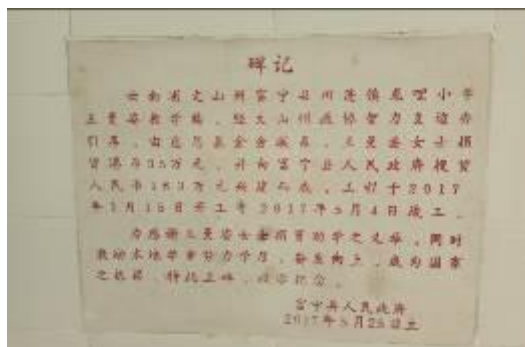 碑记
云南省文山州富宁县州 镇龙 小学
王曼姿教学楼，经文山州 智力支边办
引荐，由 基金会 ，王曼姿女士捐
资港币35万元，并由富宁县人民政府投资
人民币183万元兴建而成，工程于2017
年1月18日开工至2017年5月4日竣工。
为感谢王曼姿女士捐资助学之义举，同时
激励本地学生努力学习，奋发向上，成为国家
之栋梁，特此立碑， 纪念。
富宁县人民政府
2017年5月25日立